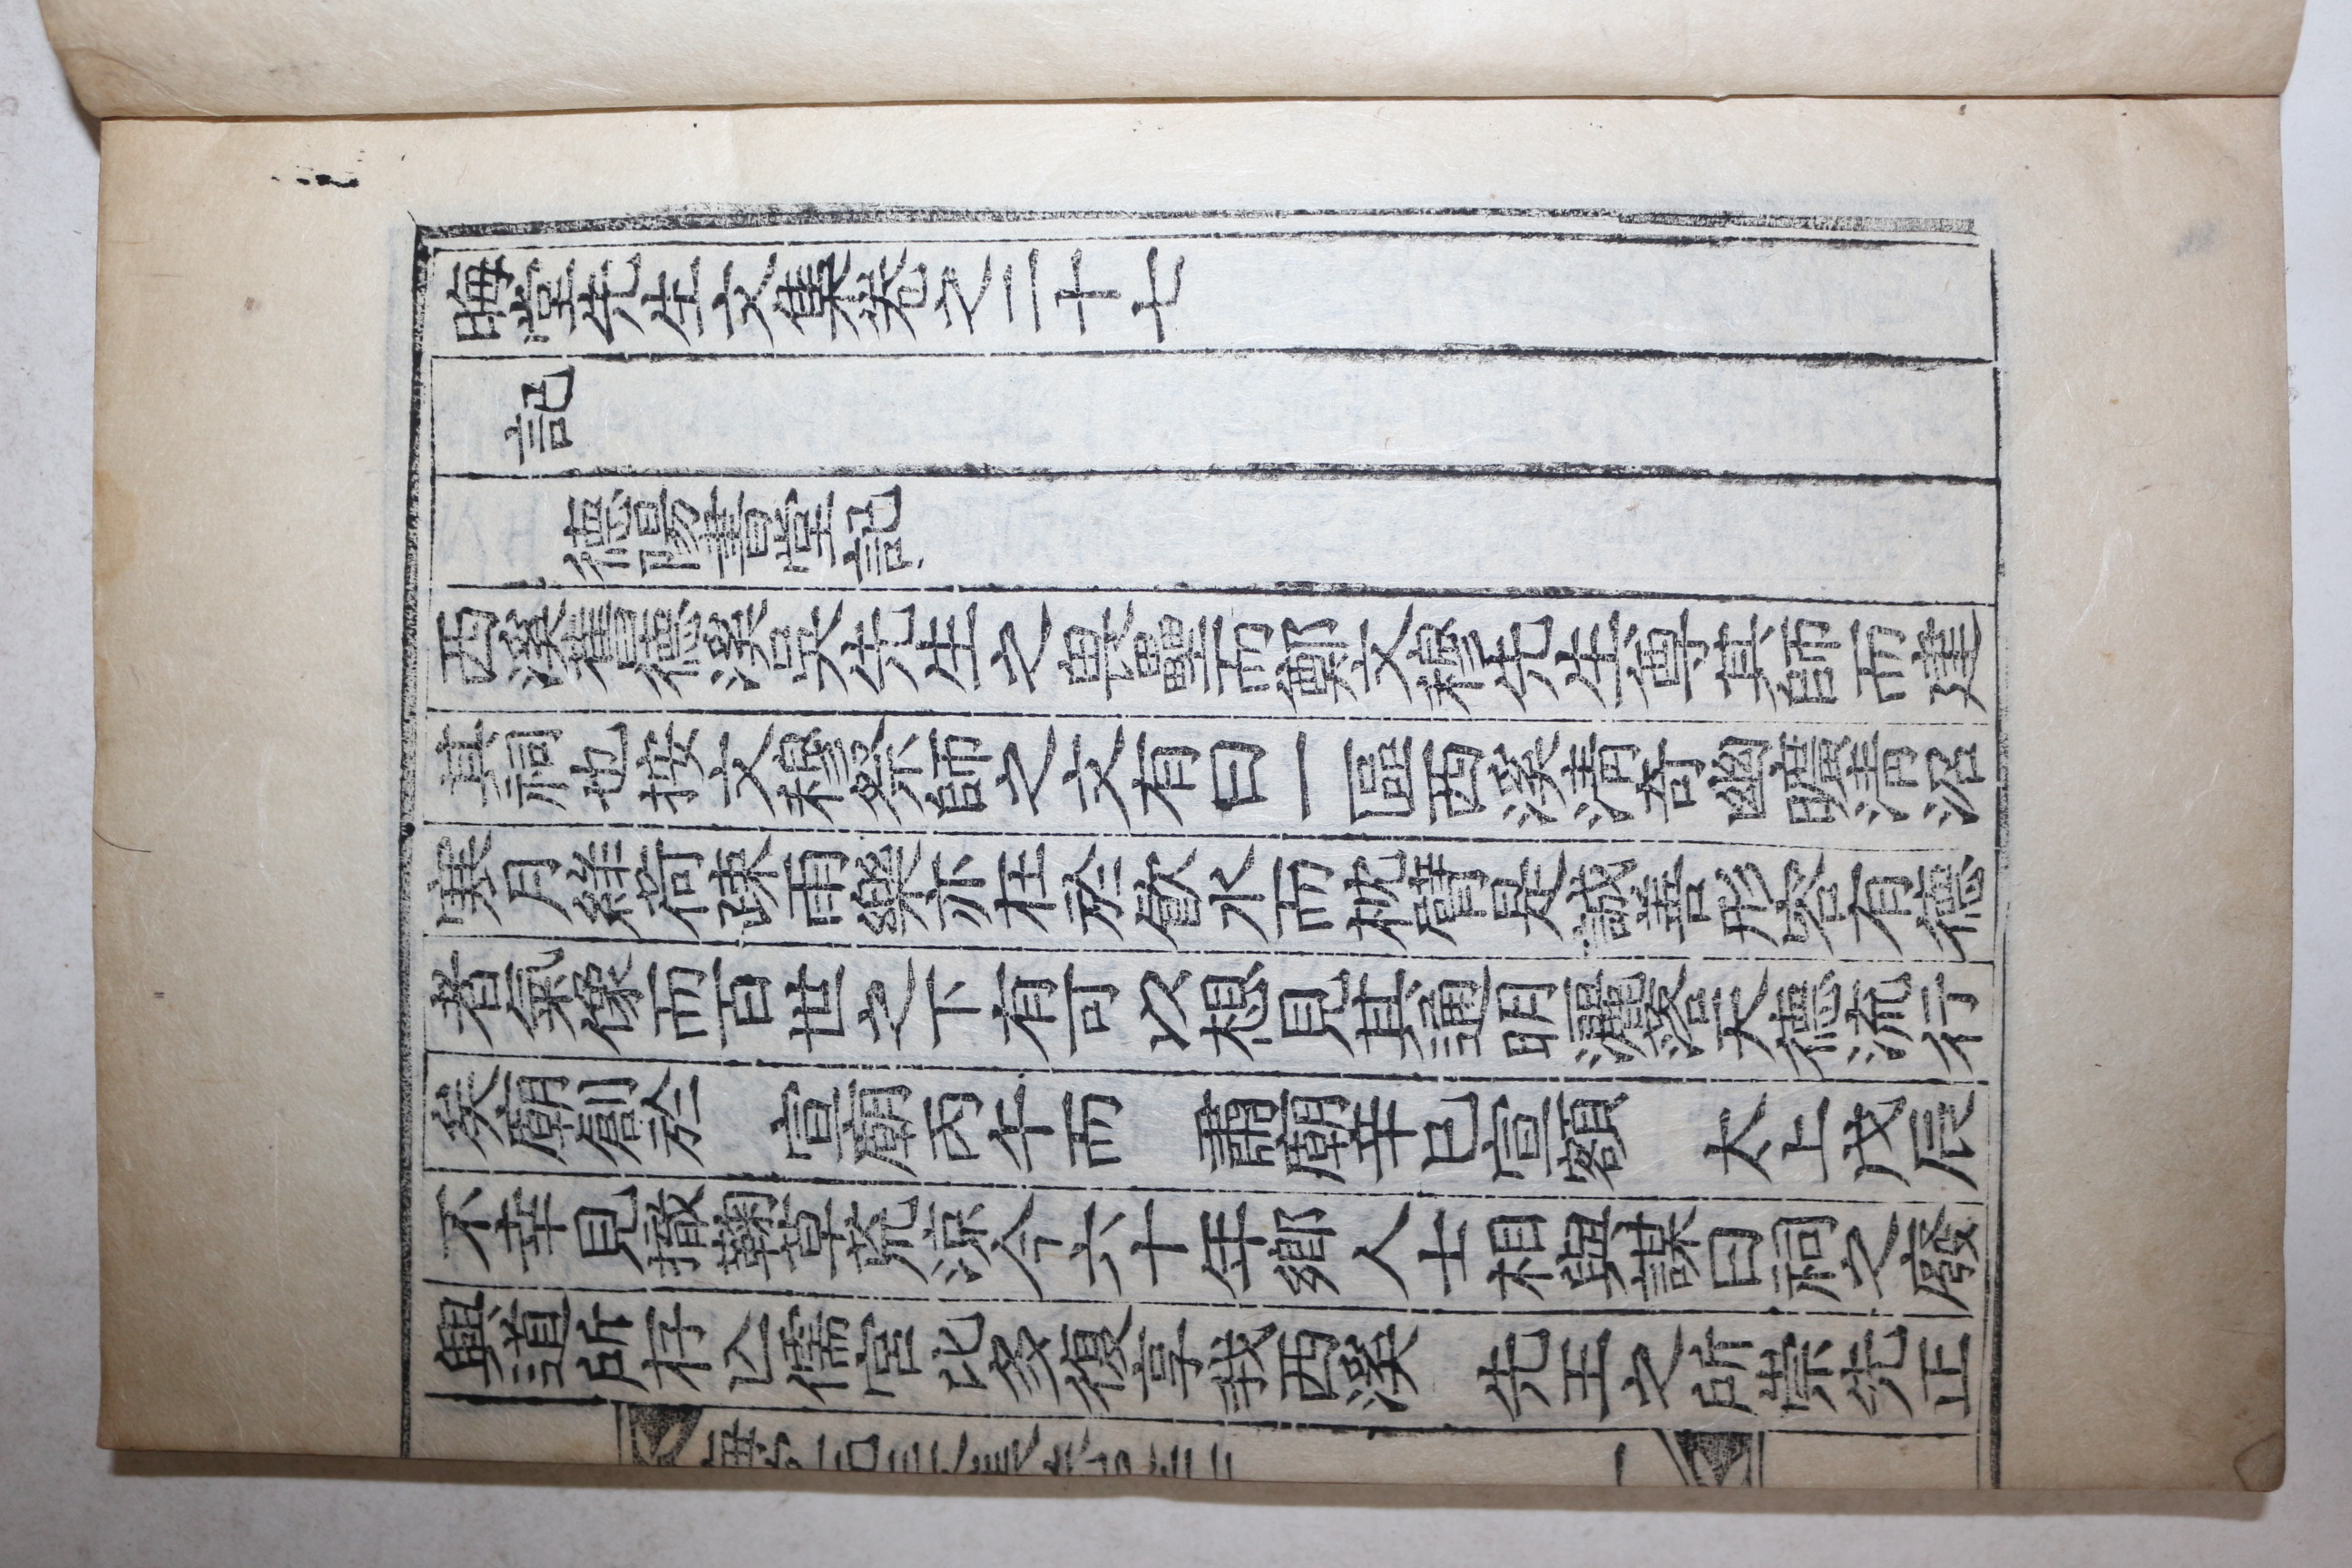 晦堂先生文集卷之二十七
記
德隱書堂記
西溪書德溪吳先生之畏壘而鄭文穆先生尊其師而建
其祠也按文穆祭師之文有曰一區西溪淸奇幽曠淸沼
寒月綠荷疎雨樂亦在於飮水而枕書是誠善形容有德
者氣像而百世之下有可以想見其通明灑落天德流行
矣廟創於 宣廟丙午而 肅廟辛巳宣額 太上戊辰
不幸見撤鞠草荒凉今六十年鄕人士相與謀曰祠之廢
興道所存亾儒宮比多復享我西溪 先王之所崇先正